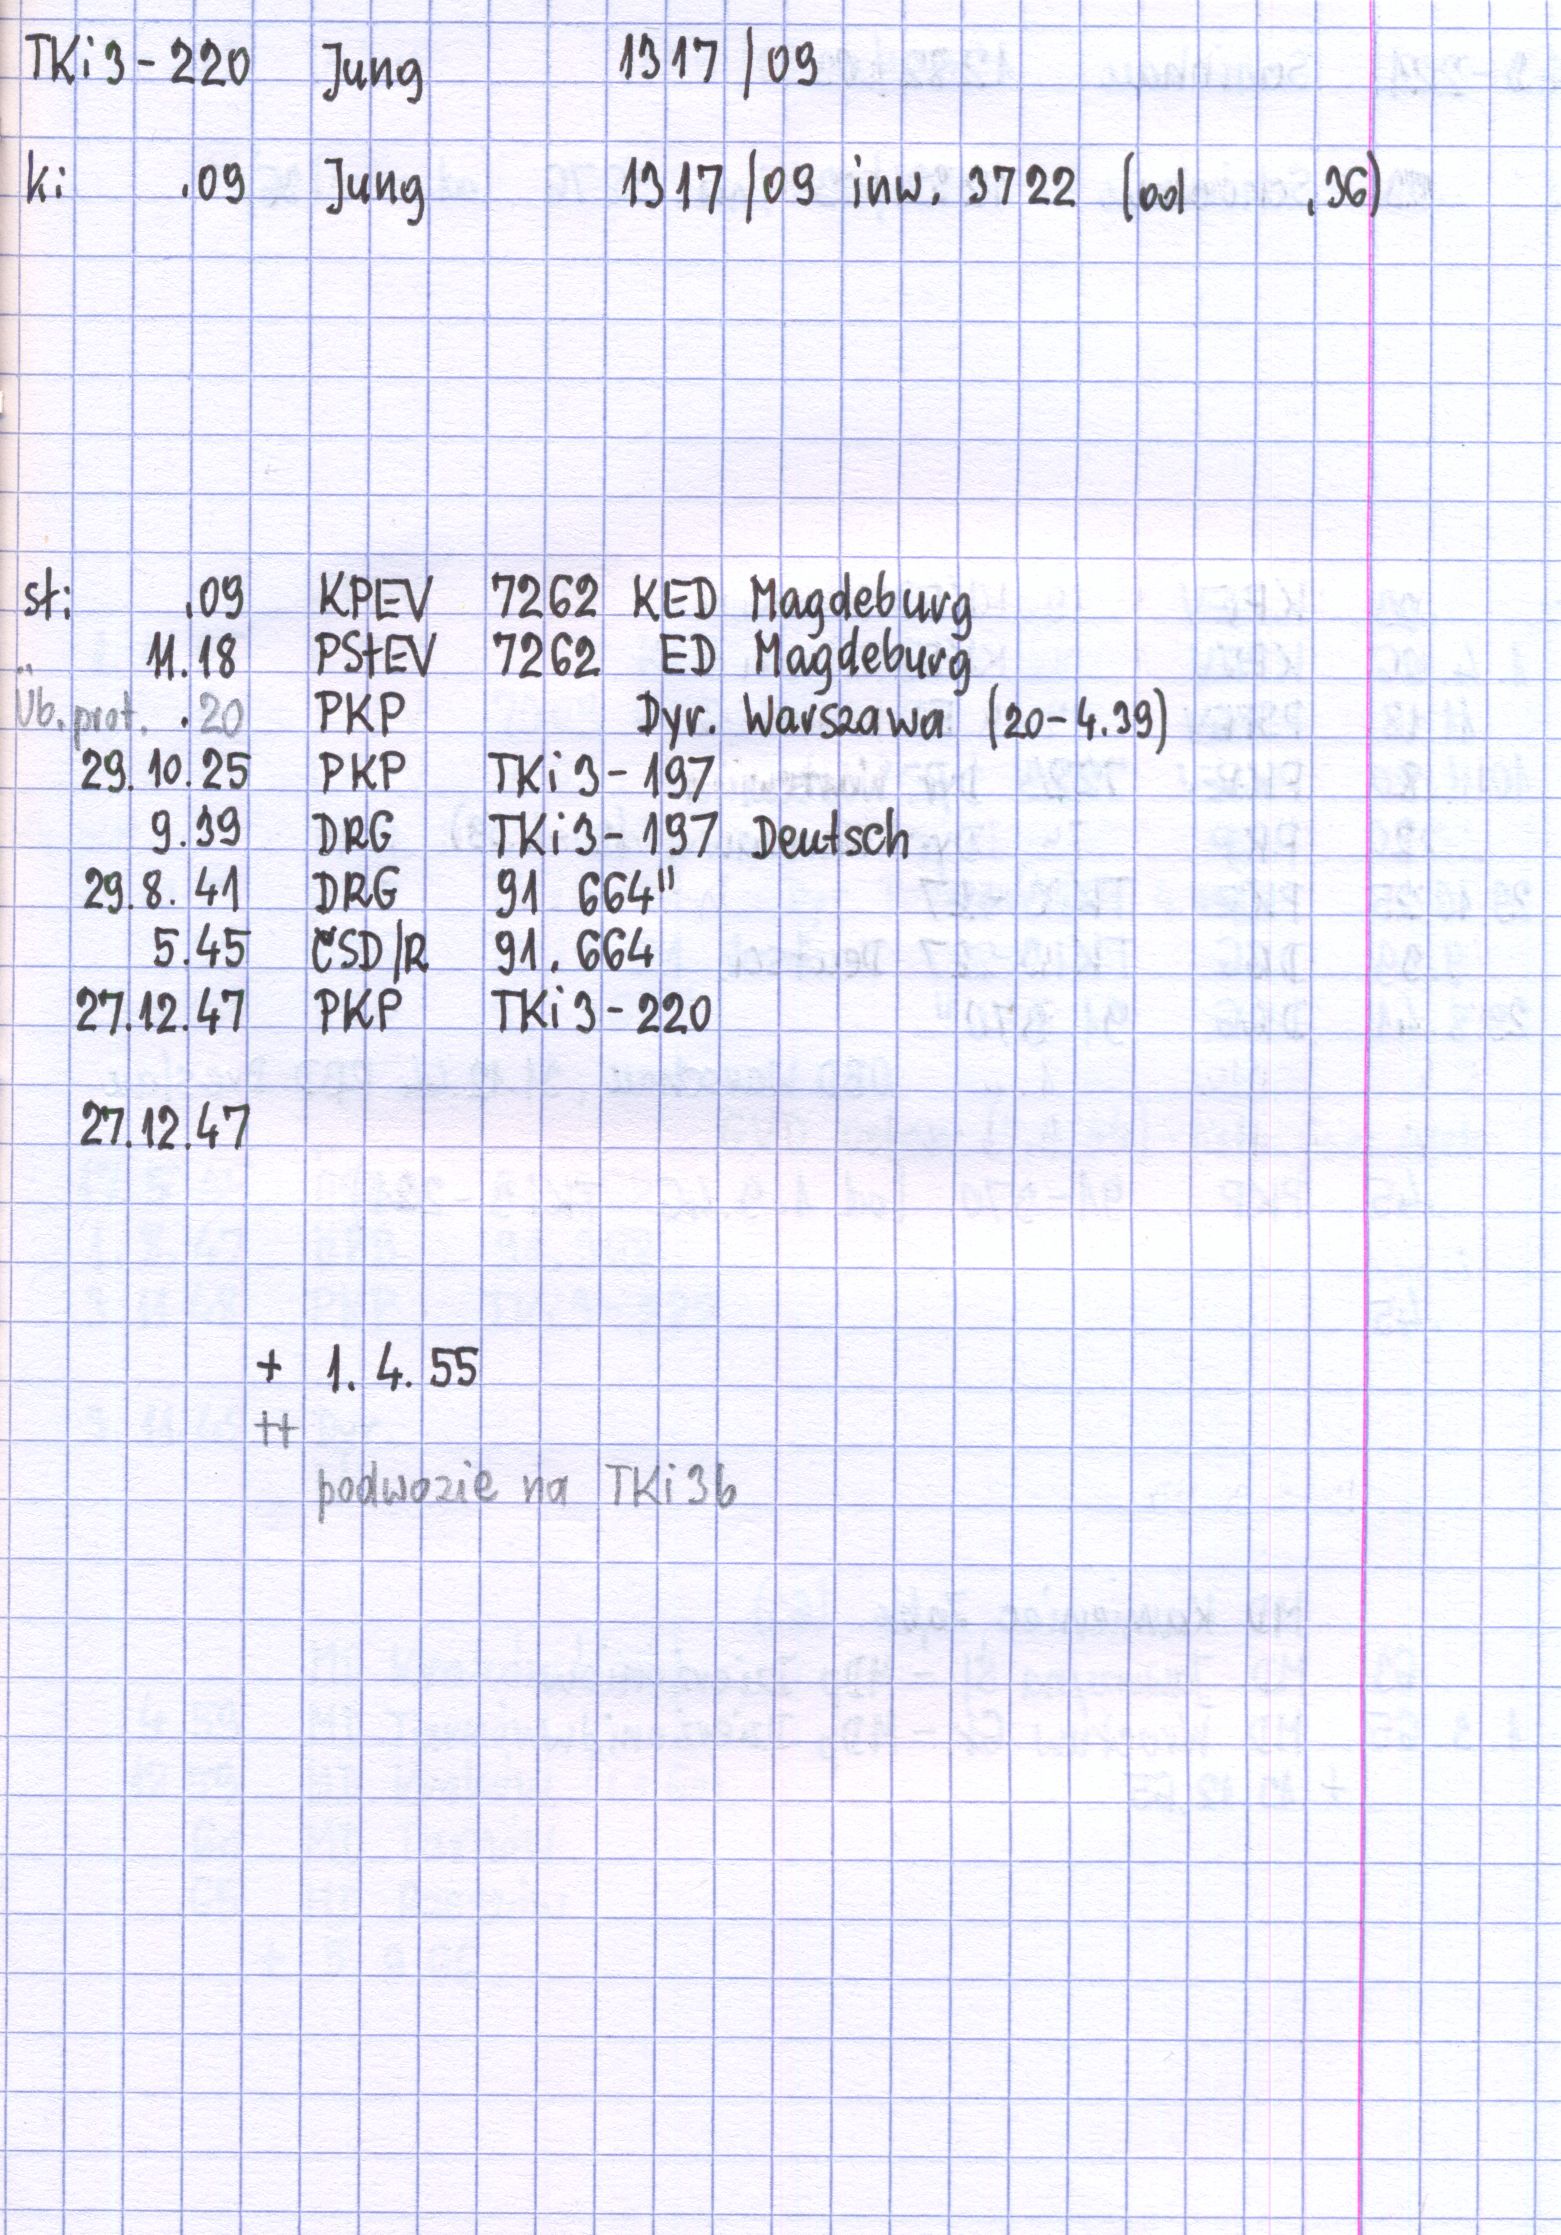 TKi3-220 Jung 1317/09
ki: .09 Jung 1317/09 inw. 3722 (od .36)
st: .09 KPEV 7262 KED Magdeburg
11.18 PStEV 7262 ED Magdeburg
Üb.prot. .20 PKP Dyr. Warszawa (20-4.39)
29.10.25 PKP TKi3-197
9.39 DRG TKi3-197 Deutsch
29.8.41 DRG 91 664"
5.45 ČSD/R 91.664
27.12.47 PKP TKi3-220
27.12.47
+ 1.4.55
++
podwozie na TKi3b